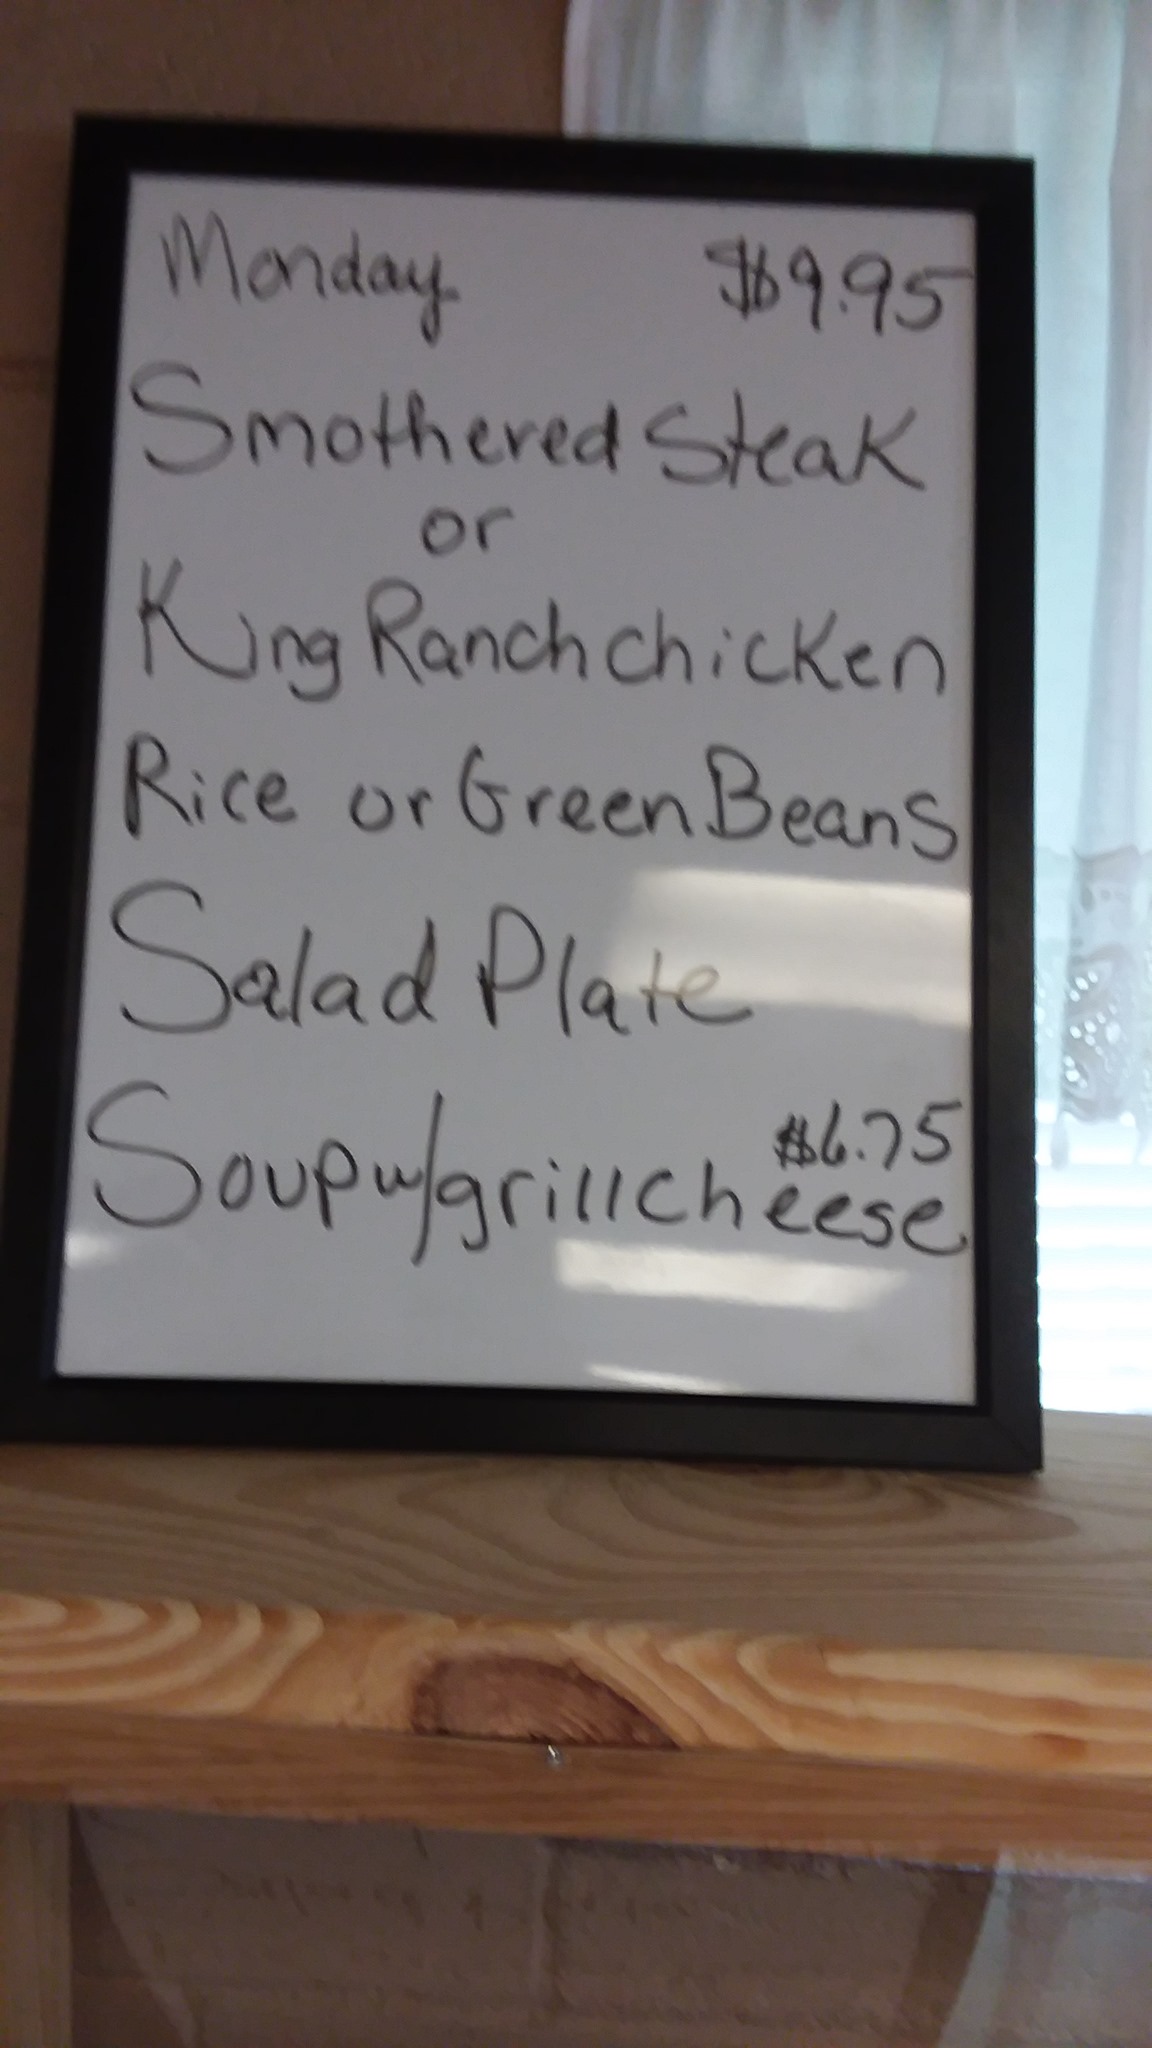 Monday $9.95
Smothered Steak
or
King Ranch chicken
Rice or Green Beans
Salad Plate
$6.75
Soup w/grill cheese